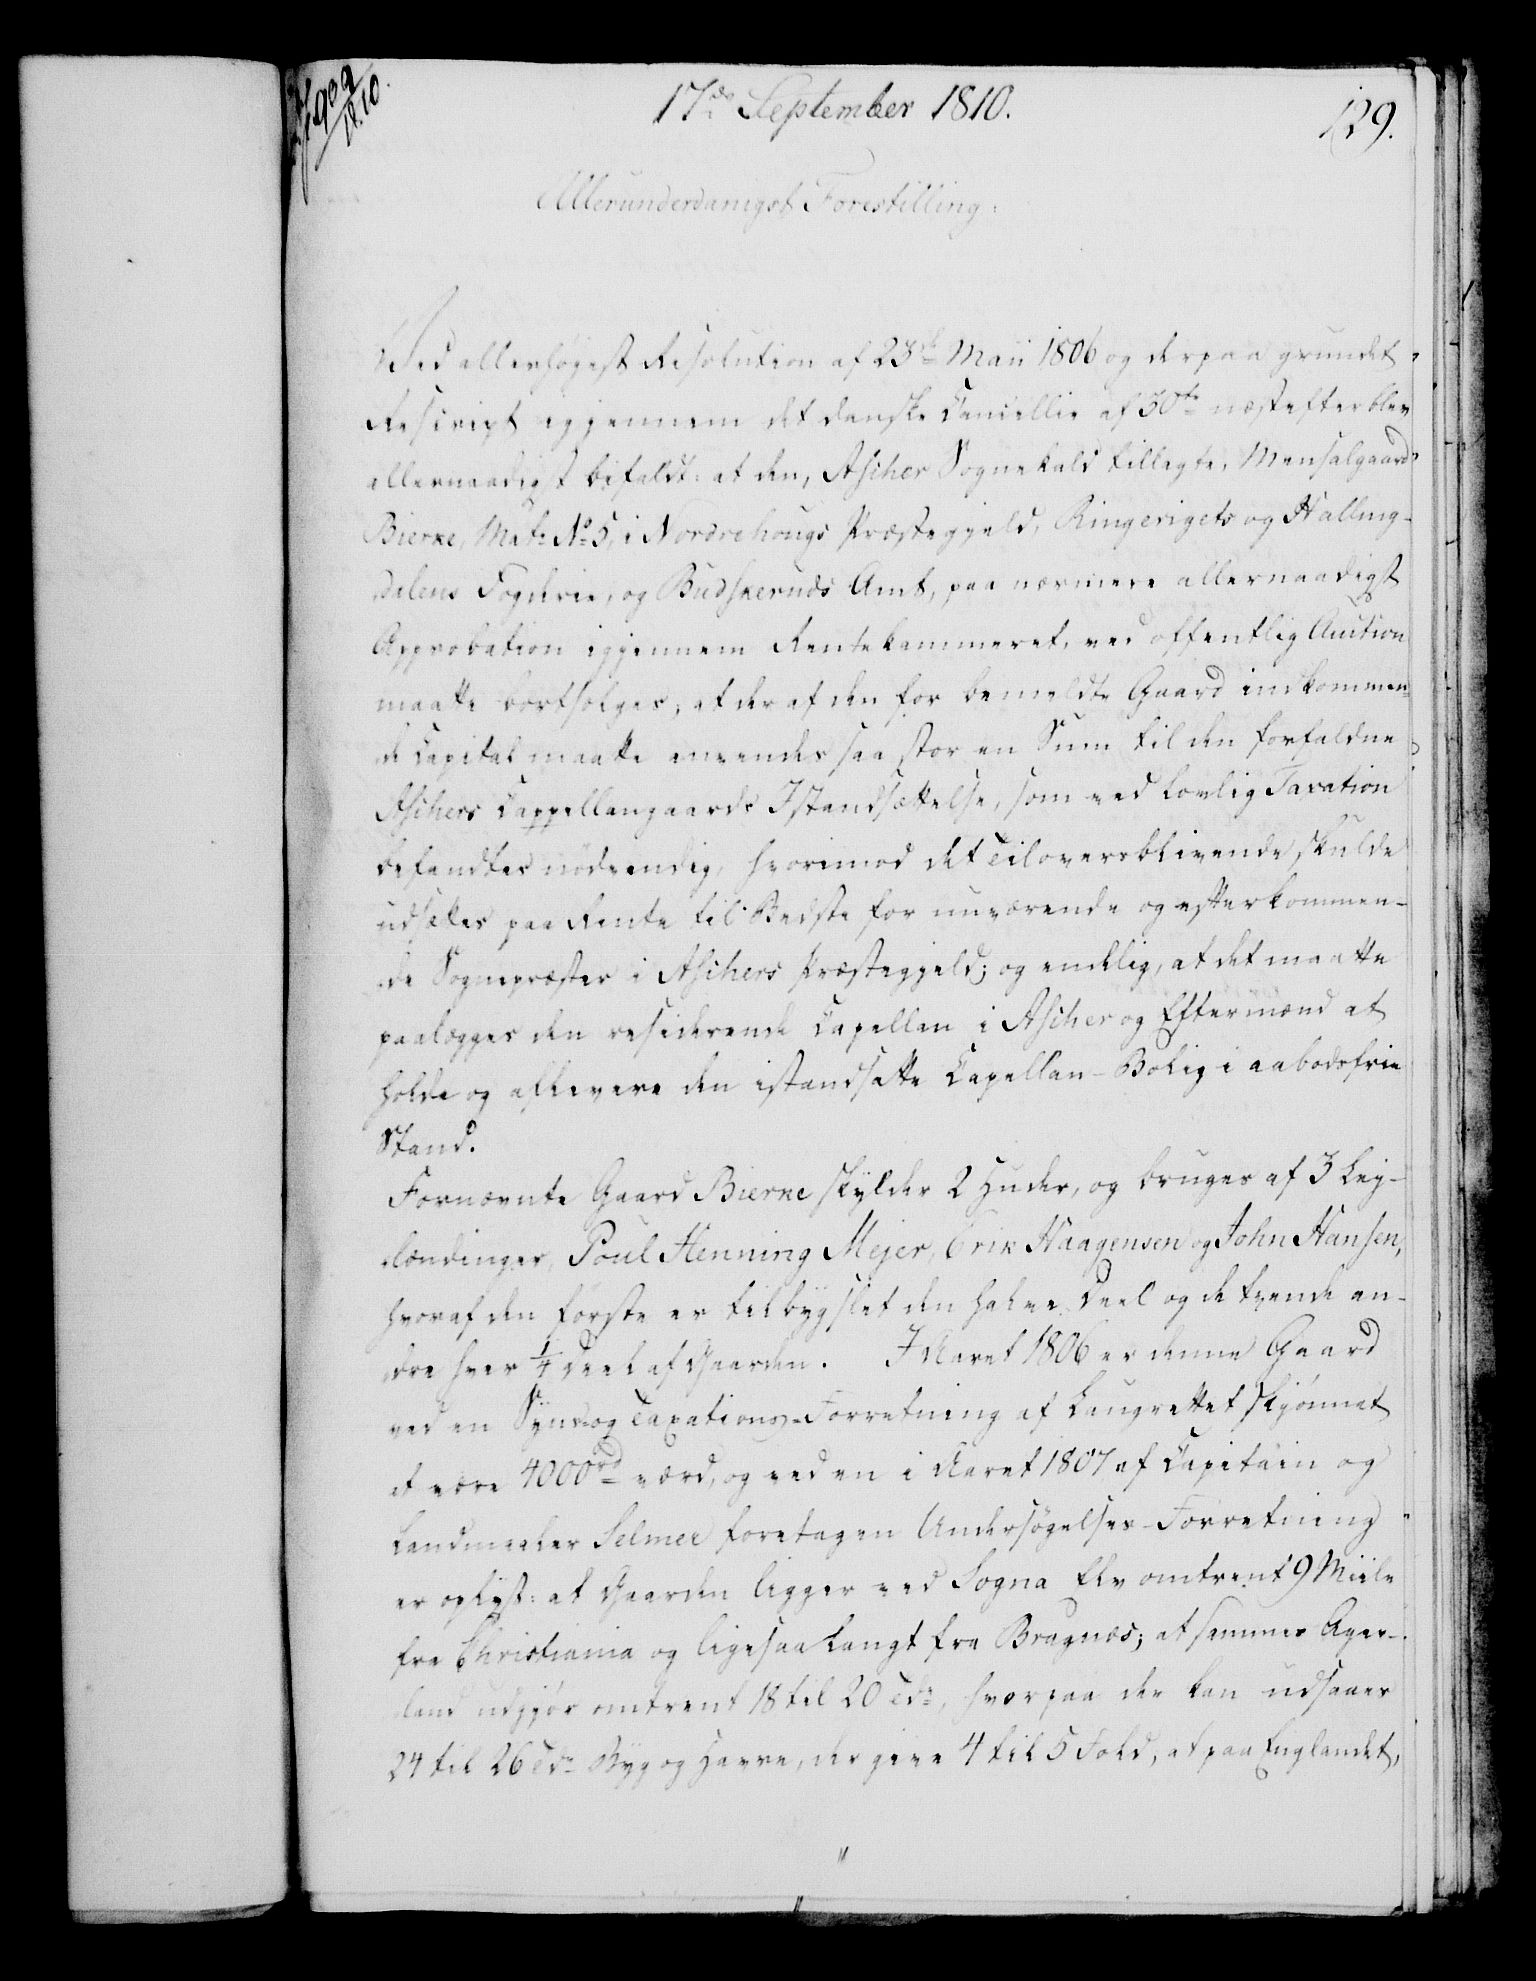 17de September 1810.
129.
Allerunderdanigst Forestilling.
Ved allerhøjest Resolution af 23de Maii 1806 og derpaa grundet
Rescript igjennem det danske Cancellie af 30te næstefter blev
allernaadigst befaldt: at den, Ascher Sognekald tillagte, Mensalgaard
Bierke, Mat: No 5, i Nordrehougs Præstegjeld, Ringerigets og Halling-
dalens Fogderie, og Budskeruds Amt, paa nærmere allernaadigst
Approbation igjennem Rentekammeret, ved offentlig Auction
maatte bortsælges; at der af den for bemeldte Gaard indkommen-
de Capital maatte anvendes saa stor en Sum til den forfaldne
Aschers Cappellangaards Istandsættelse, som ved lovlig Taxation
befandtes nödvendig, hvorimod det Tiloversblivende skulde
udsættes paa Rente til Bedste for nuværende og efterkommen-
de Sognepræster i Aschers Præstegjeld; og endelig, at det maatte
paalægges den residerende Capellan i Ascher og Eftermænd at
holde og aflevere den istandsatte Capellan-Bolig i aabodsfrie
Stand.
Fornævnte Gaard Bierke skylder 2 Huder, og bruges af 3 Ley-
lændinger, Poul Henning Mejer, Erik Haagensen og John Hansen,
hvoraf den første er tilbygslet den halve Deel og de tvende an-
dre hver 1/4 Deel af Gaarden. I Aaret 1806 er denne Gaard
ved en Syns- og Taxations-Forretning af Laugrettet skjønnet
at være 4000rd værd, og ved en i Aaret 1807 af Capitain og
Landmaaler Selmer foretagen Undersøgelses-Forretning
er oplyst: at Gaarden ligger ved Sogna Elv omtrent 9 Miile
fra Christiania og ligesaa langt fra Bragnæs; at sammes Ager-
land udgjør omtrent 18 til 20 Tdr, hvorpaa der kan udsaaes
24 til 26 Tdr Byg og Havre, der give 4 til 5 Fold, at paa Englandet,